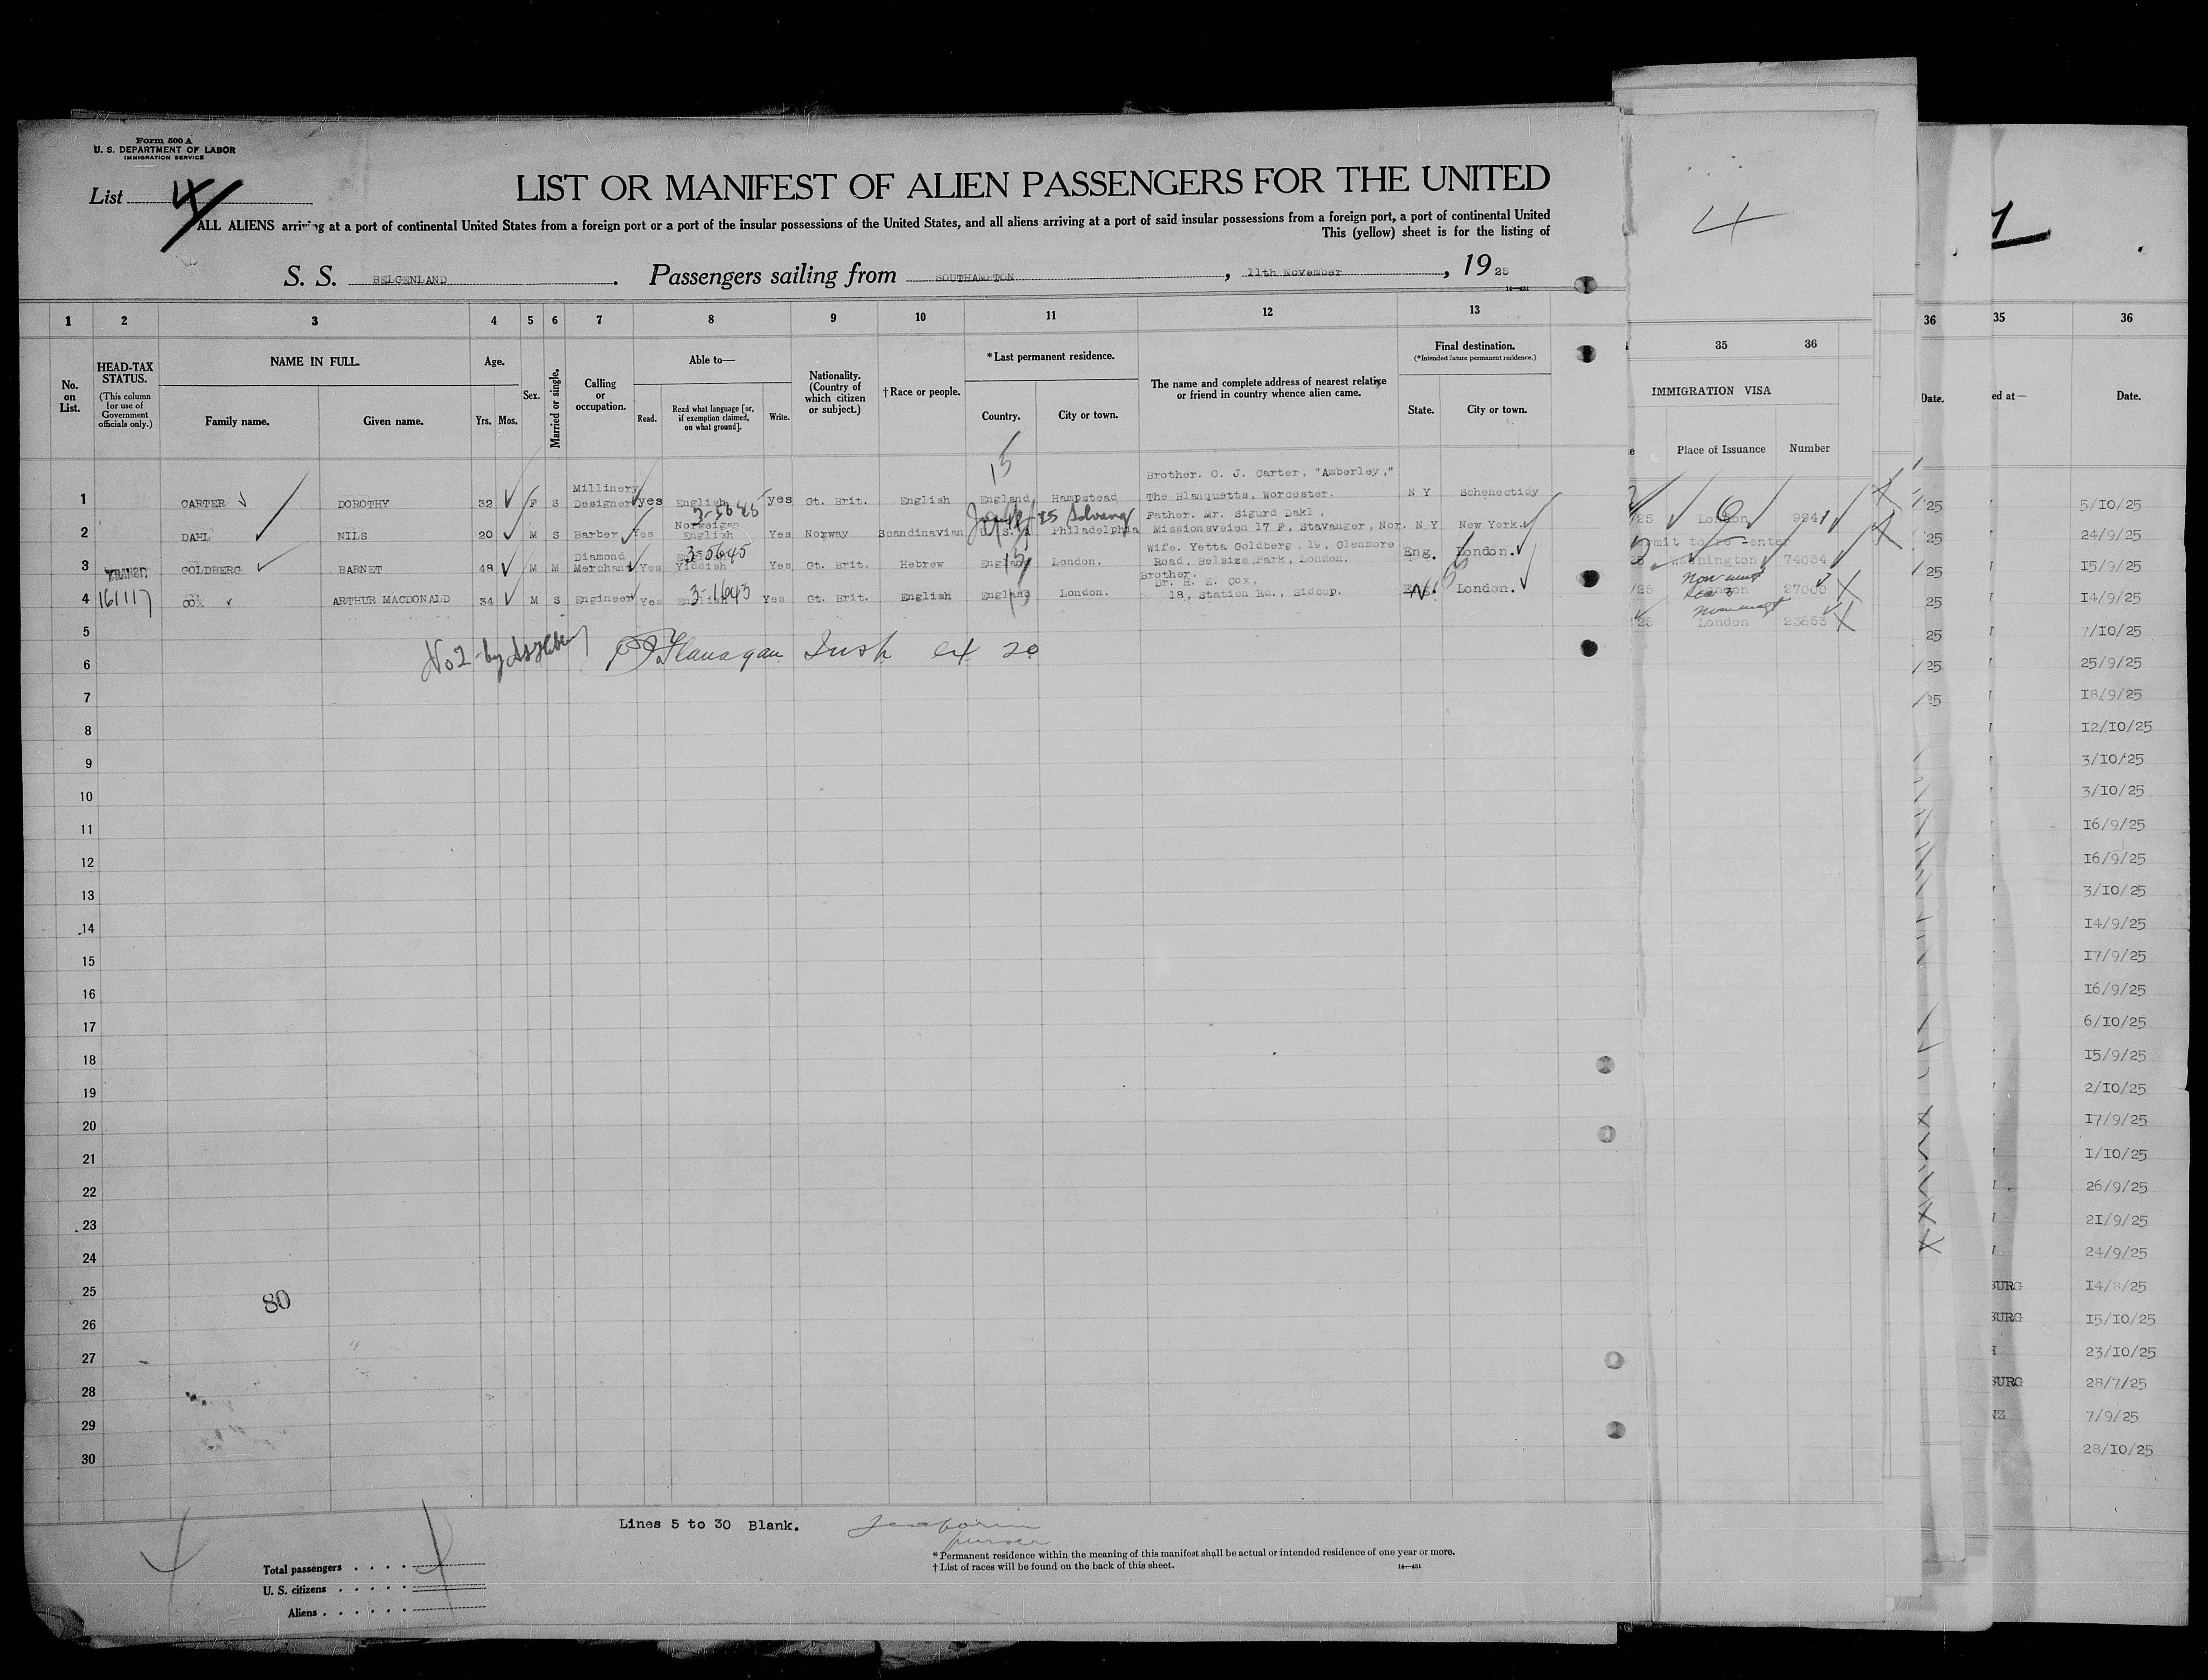 Form 500 A
U. S. DEPARTMENT OF LABOR
IMMIGRATION SERVICE
List 4
LIST OR MANIFEST OF ALIEN PASSENGERS FOR THE UNITED
ALL ALIENS arriving at a port of continental United States from a foreign port or a port of the insular possessions of the United States, and all aliens arriving at a port of said insular possessions from a foreign port, a port of continental United
This (yellow) sheet is for the listing of
S. S. BELGENLAND . Passengers sailing from SOUTHAMPTON , 11th November , 19 25
1 2 3 4 5 6 7 8 9 10 11 12 13
No. on List.
HEAD-TAX STATUS.
(This column for use of Government officials only.)
NAME IN FULL.
Family name. Given name.
Age.
Yrs. Mos.
Sex.
Married or single.
Calling or occupation.
Able to—
Read. Read what language [or, if exemption claimed, on what ground]. Write.
Nationality. (Country of which citizen or subject.)
† Race or people.
*Last permanent residence.
Country. City or town.
The name and complete address of nearest relative or friend in country whence alien came.
Final destination.
(*Intended future permanent residence.)
State. City or town.
1 CARTER DOROTHY 32 F S Millinery Designer yes English yes Gt. Brit. English England Hampstead Brother. O. J. Carter, "Amberley," The Blanquetts, Worcester. N Y Schenectidy
2 DAHL NILS 20 M S Barber Yes Norweigan English Yes Norway Scandinavian U.S.A Philadelphia Father. Mr. Sigurd Dakl, Missionsveien 17 F, Stavanger, Nor. N Y New York.
3 GOLDBERG BARNET 48 M M Diamond Merchant Yes Yiddish Yes Gt. Brit. Hebrew England London. Wife. Yetta Goldberg, 19, Glenmore Road, Belsize Park, London. Eng. London.
4 161117 COX ARTHUR MACDONALD 34 M S Engineer Yes English Yes Gt. Brit. English England London. Brother. Dr. H. E. Cox, 18, Station Rd., Sidcup. London.
3-5645
3-1643
5
6
Flanagan
7
8
9
10
11
12
13
14
15
16
17
18
19
20
21
22
23
24
25
80
26
27
28
29
30
Lines 5 to 30 Blank.
purser
* Permanent residence within the meaning of this manifest shall be actual or intended residence of one year or more.
† List of races will be found on the back of this sheet.
14—431
Total passengers
U. S. citizens
Aliens
4
35 36
IMMIGRATION VISA
Place of Issuance Number
25 London 9941
permit to re-enter
Washington 74034
25 London 27000
25 London 25853
36
Date.
25
25
25
25
25
25
25
1
35 36
ed at— Date.
5/10/25
24/9/25
15/9/25
14/9/25
7/10/25
25/9/25
18/9/25
12/10/25
3/10/25
3/10/25
16/9/25
16/9/25
3/10/25
14/9/25
17/9/25
16/9/25
6/10/25
15/9/25
2/10/25
17/9/25
1/10/25
26/9/25
21/9/25
24/9/25
BURG 14/8/25
BURG 15/10/25
23/10/25
BURG 28/7/25
NZ 7/9/25
28/10/25